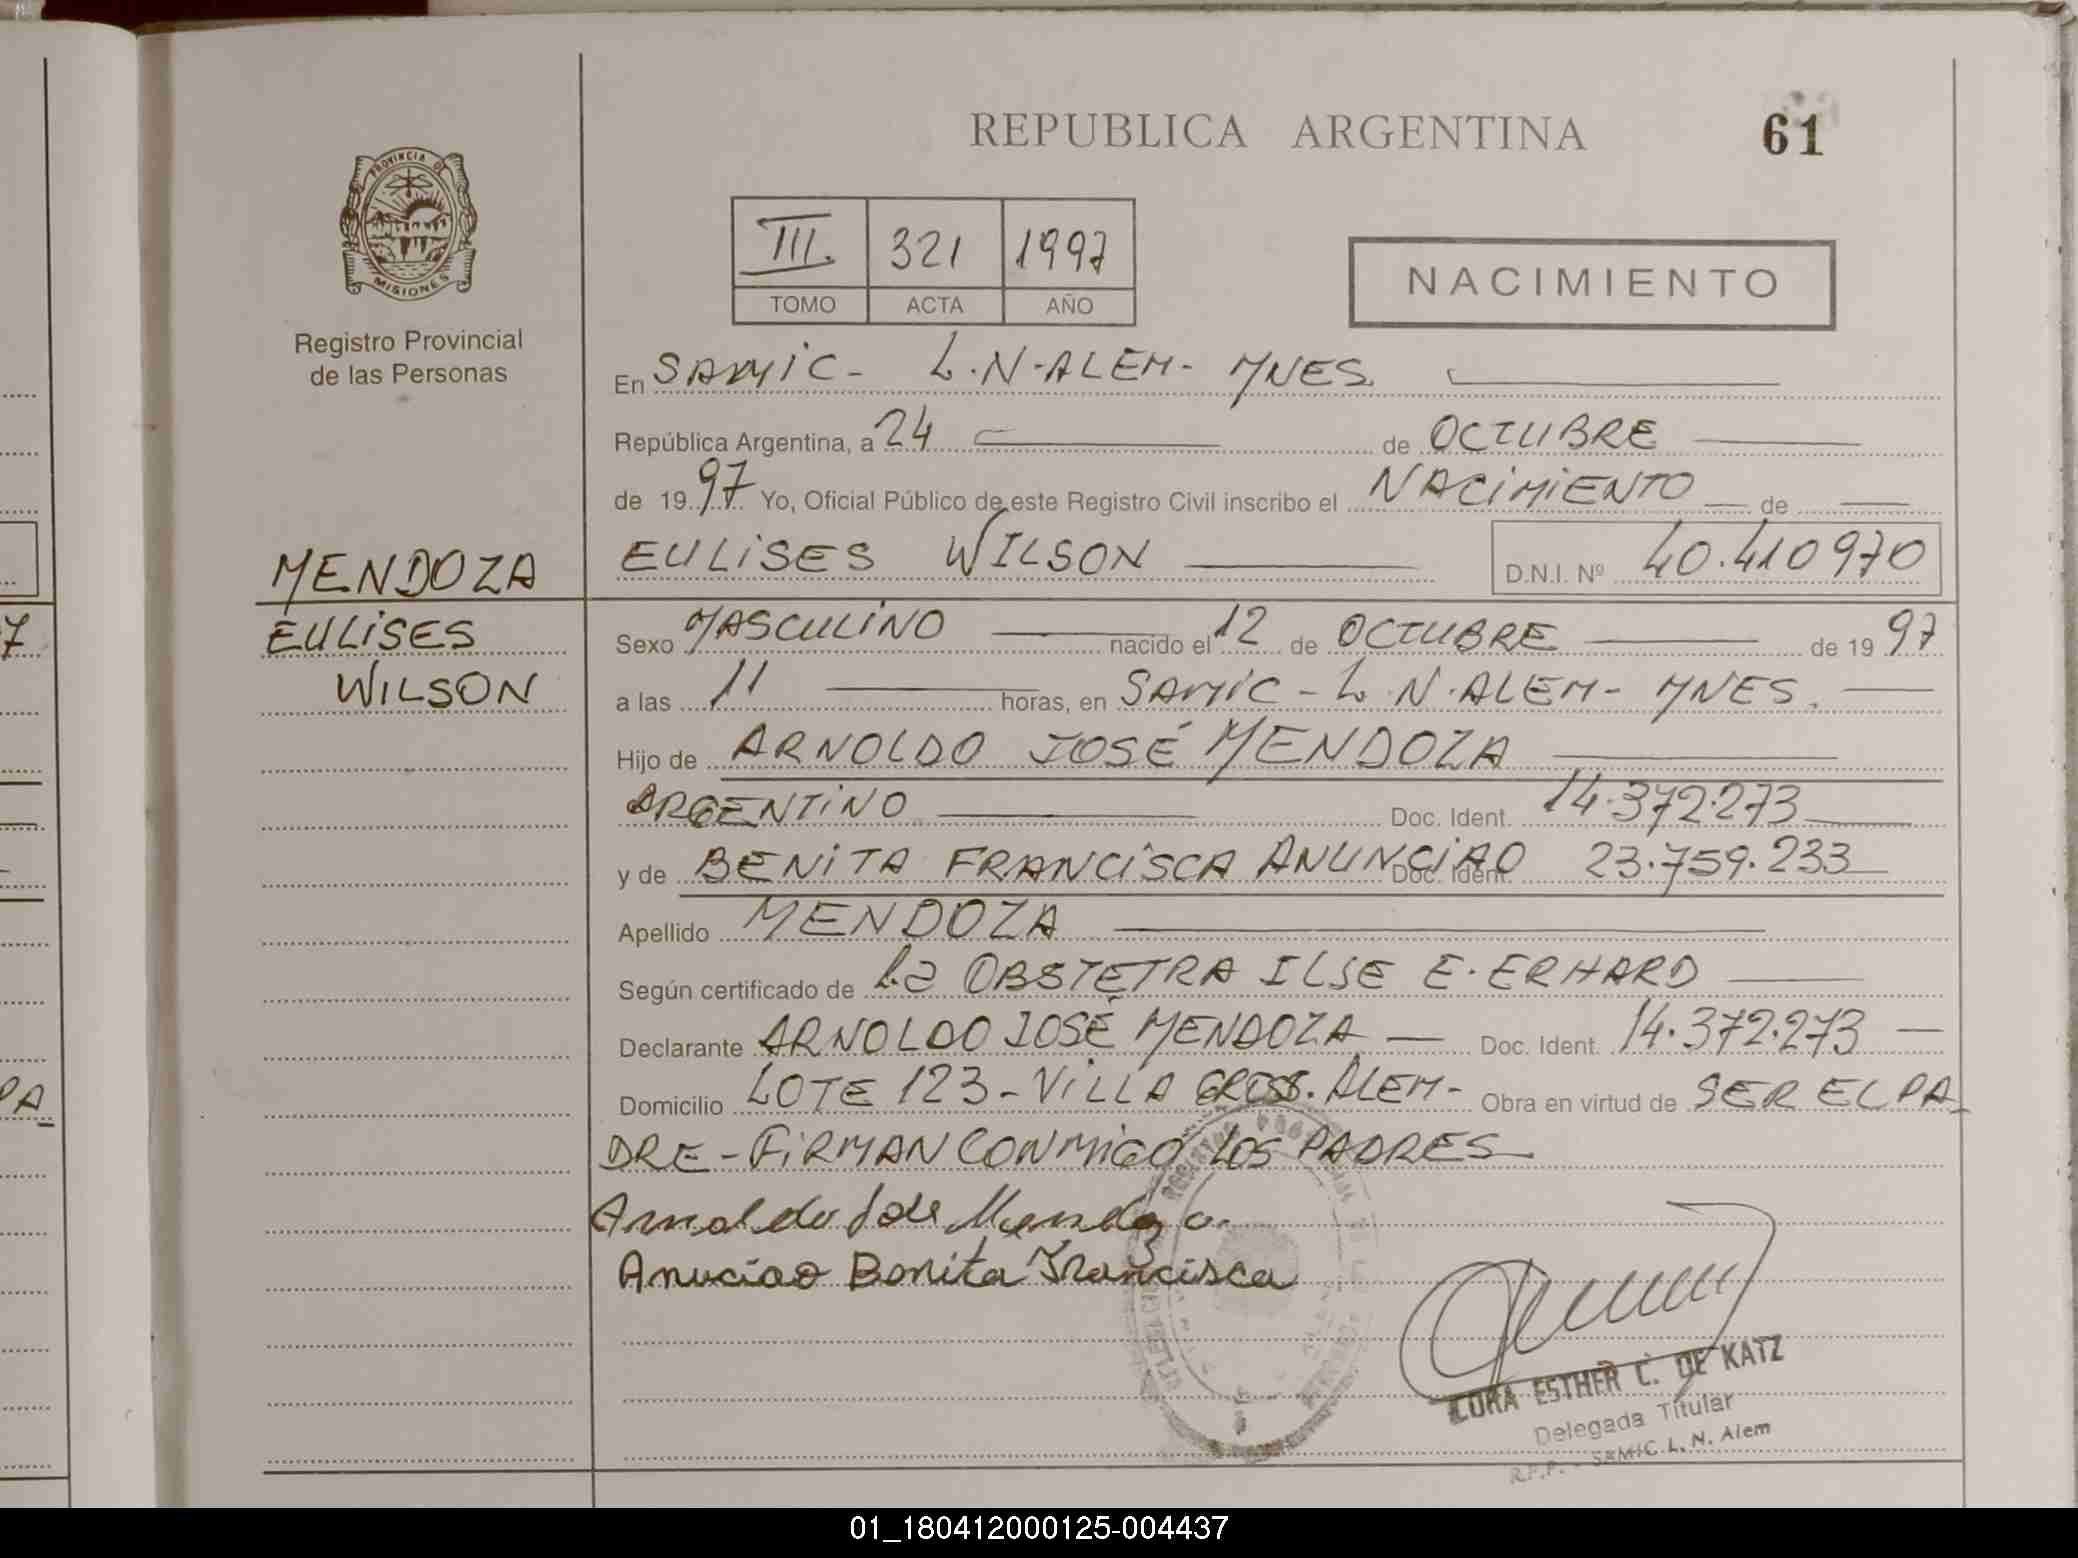 REPUBLICA ARGENTINA 61
PROVINCIA DE
MISIONES
Registro Provincial
de las Personas
III. 321 1997
TOMO ACTA AÑO
NACIMIENTO
En SAMIC - L.N-ALEM- MNES.
República Argentina, a 24 de OCTUBRE
de 1997 Yo, Oficial Público de este Registro Civil inscribo el NACIMIENTO de
MENDOZA
EULISES WILSON
EULISES WILSON D.N.I. Nº 40.410970
Sexo MASCULINO nacido el 12 de OCTUBRE de 1997
a las 11 horas, en SAMIC - L.N.ALEM- MNES.
Hijo de ARNOLDO JOSÉ MENDOZA
ARGENTINO Doc. Ident. 14.372.273
y de BENITA FRANCISCA ANUNCIAO Doc. Ident. 23.759.233
Apellido MENDOZA
Según certificado de La OBSTETRA ILSE E. ERHARD
Declarante ARNOLDO JOSÉ MENDOZA Doc. Ident. 14.372.273
Domicilio LOTE 123 - VILLA ALEM- Obra en virtud de SER EL PA
DRE - FIRMAN CONMIGO LOS PADRES
Arnoldo Jose Mendoza.
Anuciao Benita Francisca
LORA ESTHER C. DE KATZ
Delegada Titular
R.P.P. - SAMIC L. N. Alem
7
PA
01_180412000125-004437